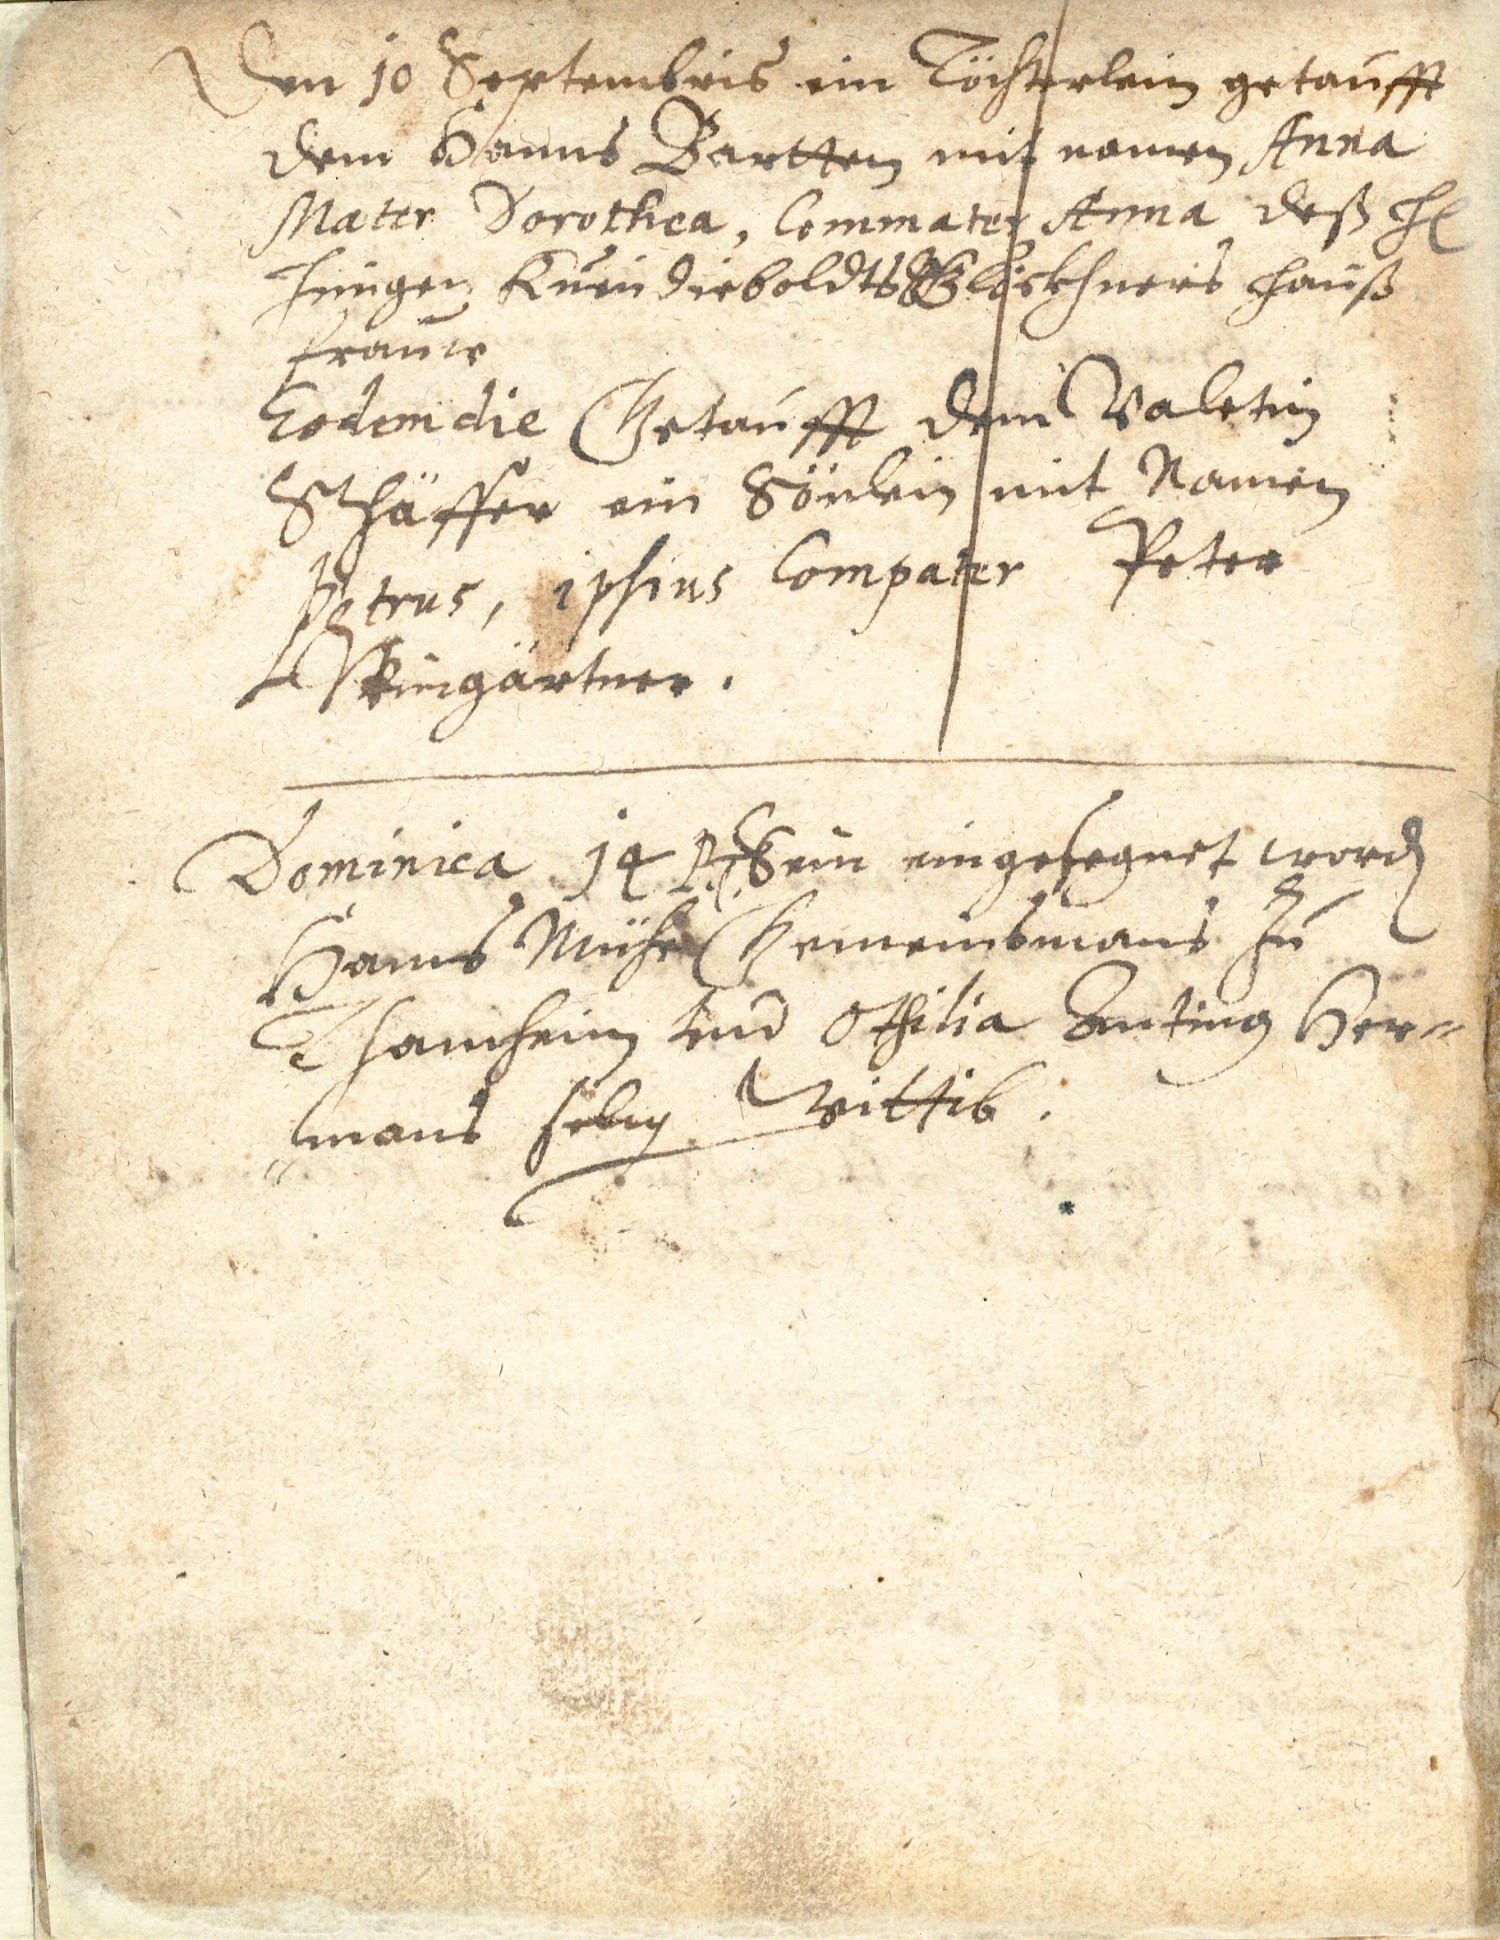 Den 10 Septembris ein Töchterlein getaufft
dem Hanns Bartten mit namen Anna
Mater Dorothea, Commater Anna deß
jungen Dieboldts Glöckhners hauß
frauw
Eodem die Getaufft dem Valetin
Schäffer ein Sönlein mit Namen
Petrus, ipsius Compater Peter
Weingärtner.
Dominica 14 Sein eingesegnet word
Hanns Gemeinsmans zu
Thamheim und Othilia Her=
mans selig Wittib.